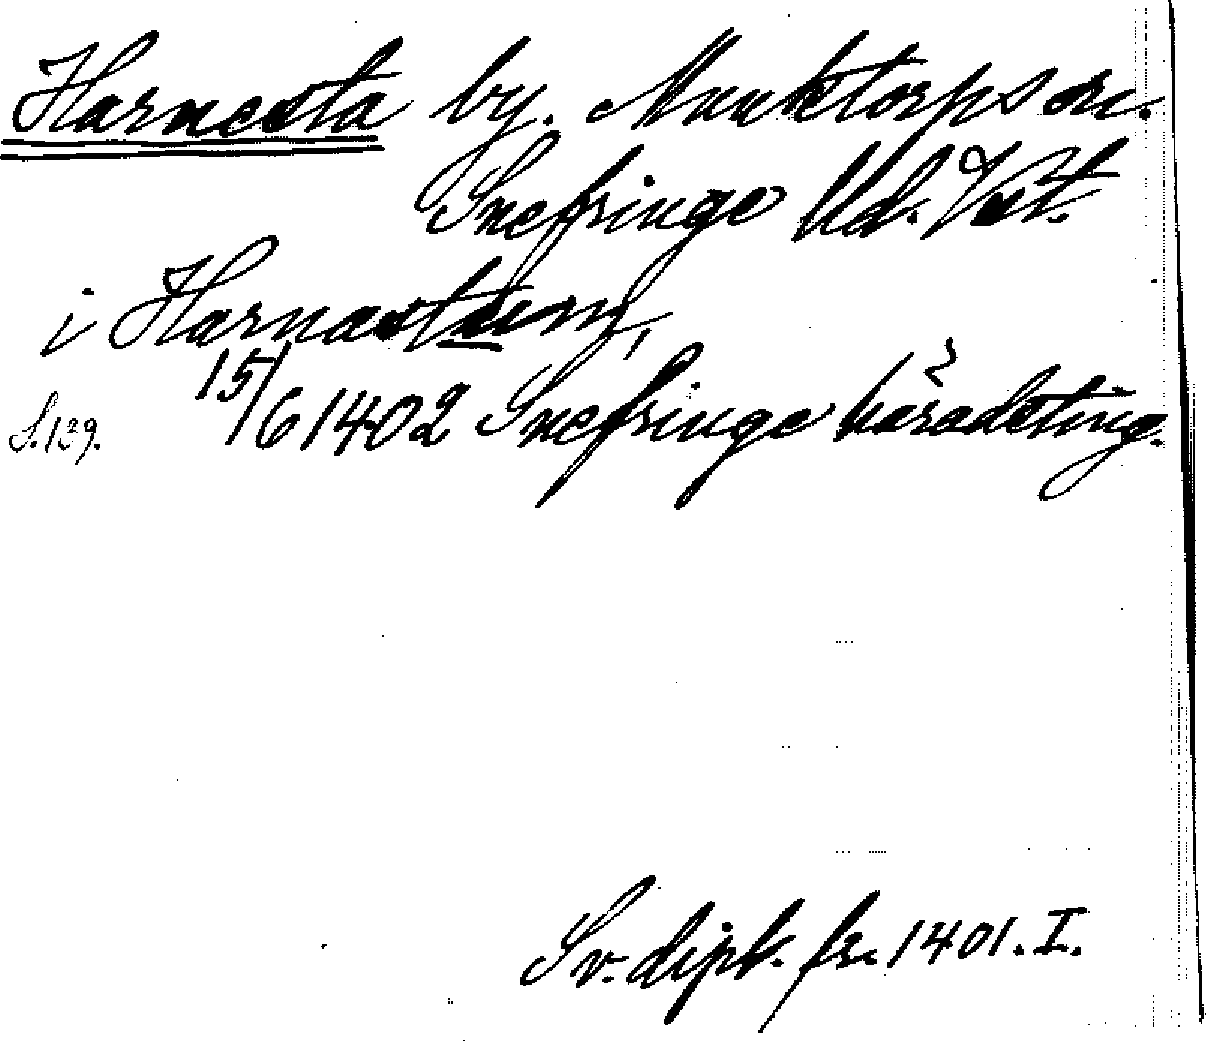 Harnesta by. Munktorps sn.
Snefringe hd. Vst.
i Harnastum,
15/6 1402 Snefringe häradsting.
S. 139.
Sv. dipl. fr. 1401. I.